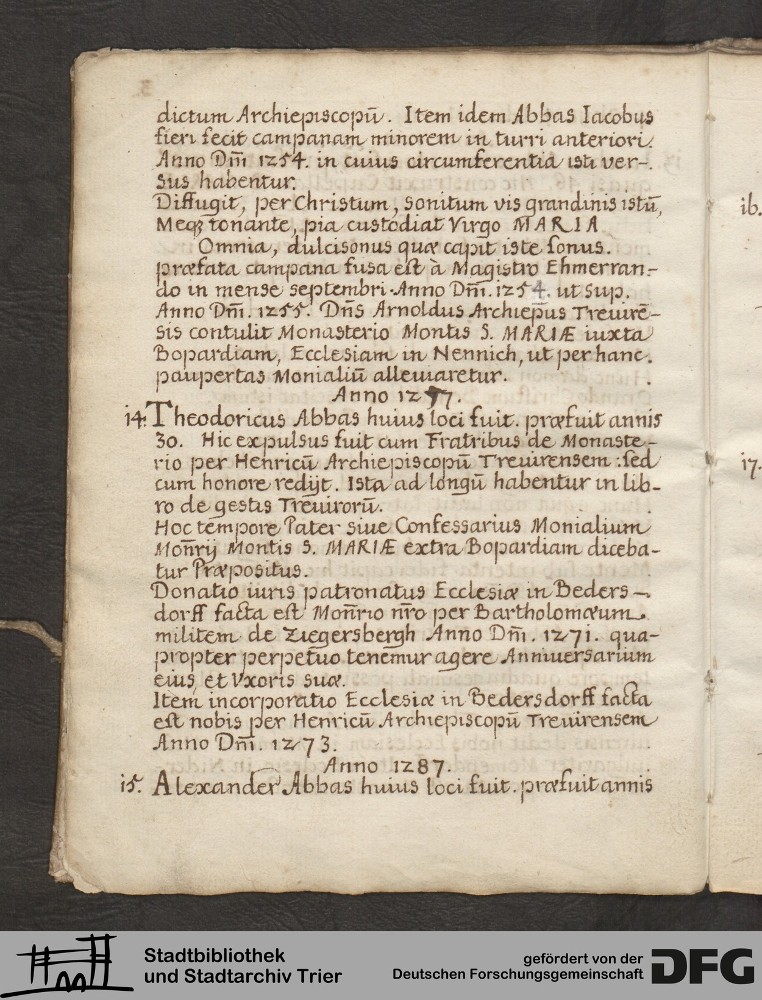 dictum Archiepiscopū. Item idem Abbas Iacobus
fieri fecit campanam minorem in turri anteriori.
Anno Dn̄i 1254. in cuius circumferentia isti ver-
sus habentur.
Diffugit, per Christum, sonitum vis grandinis istū,
Meq; tonante, pia custodiat Virgo MARIA
Omnia, dulcisonus quæ capit iste sonus.
præfata campana fusa est à Magistro Ehmerran-
do in mense septembri. Anno Dn̄i. 1254. ut sup.
Anno Dn̄i. 1255. Dn̄s Arnoldus Archiep̄us Treuirē-
sis contulit Monasterio Montis S. MARIÆ iuxta
Bopardiam, Ecclesiam in Nennich, ut per hanc
paupertas Monialiū alleuiaretur.
Anno 1257.
14. Theodoricus Abbas huius loci fuit. præfuit annis
30. Hic expulsus fuit cum Fratribus de Monaste-
rio per Henricū Archiepiscopū Treuirensem: sed
cum honore redijt. Ista ad longū habentur in lib-
ro de gestis Treuirorū.
Hoc tempore Pater siue Confessarius Monialium
Mon̄rij Montis S. MARIÆ extra Bopardiam diceba-
tur Præpositus.
Donatio iuris patronatus Ecclesiæ in Beders-
dorff facta est Mon̄rio nr̄o per Bartholomæum
militem de Ziegersbergh Anno Dn̄i. 1271. qua-
propter perpetuo tenemur agere Anniuersarium
eius, et Vxoris suæ.
Item incorporatio Ecclesiæ in Bedersdorff facta
est nobis per Henricū Archiepiscopū Treuirensem
Anno Dn̄i. 1273.
Anno 1287.
15. Alexander Abbas huius loci fuit. præfuit annis
16.
17.
Stadtbibliothek
und Stadtarchiv Trier
gefördert von der
Deutschen Forschungsgemeinschaft
DFG